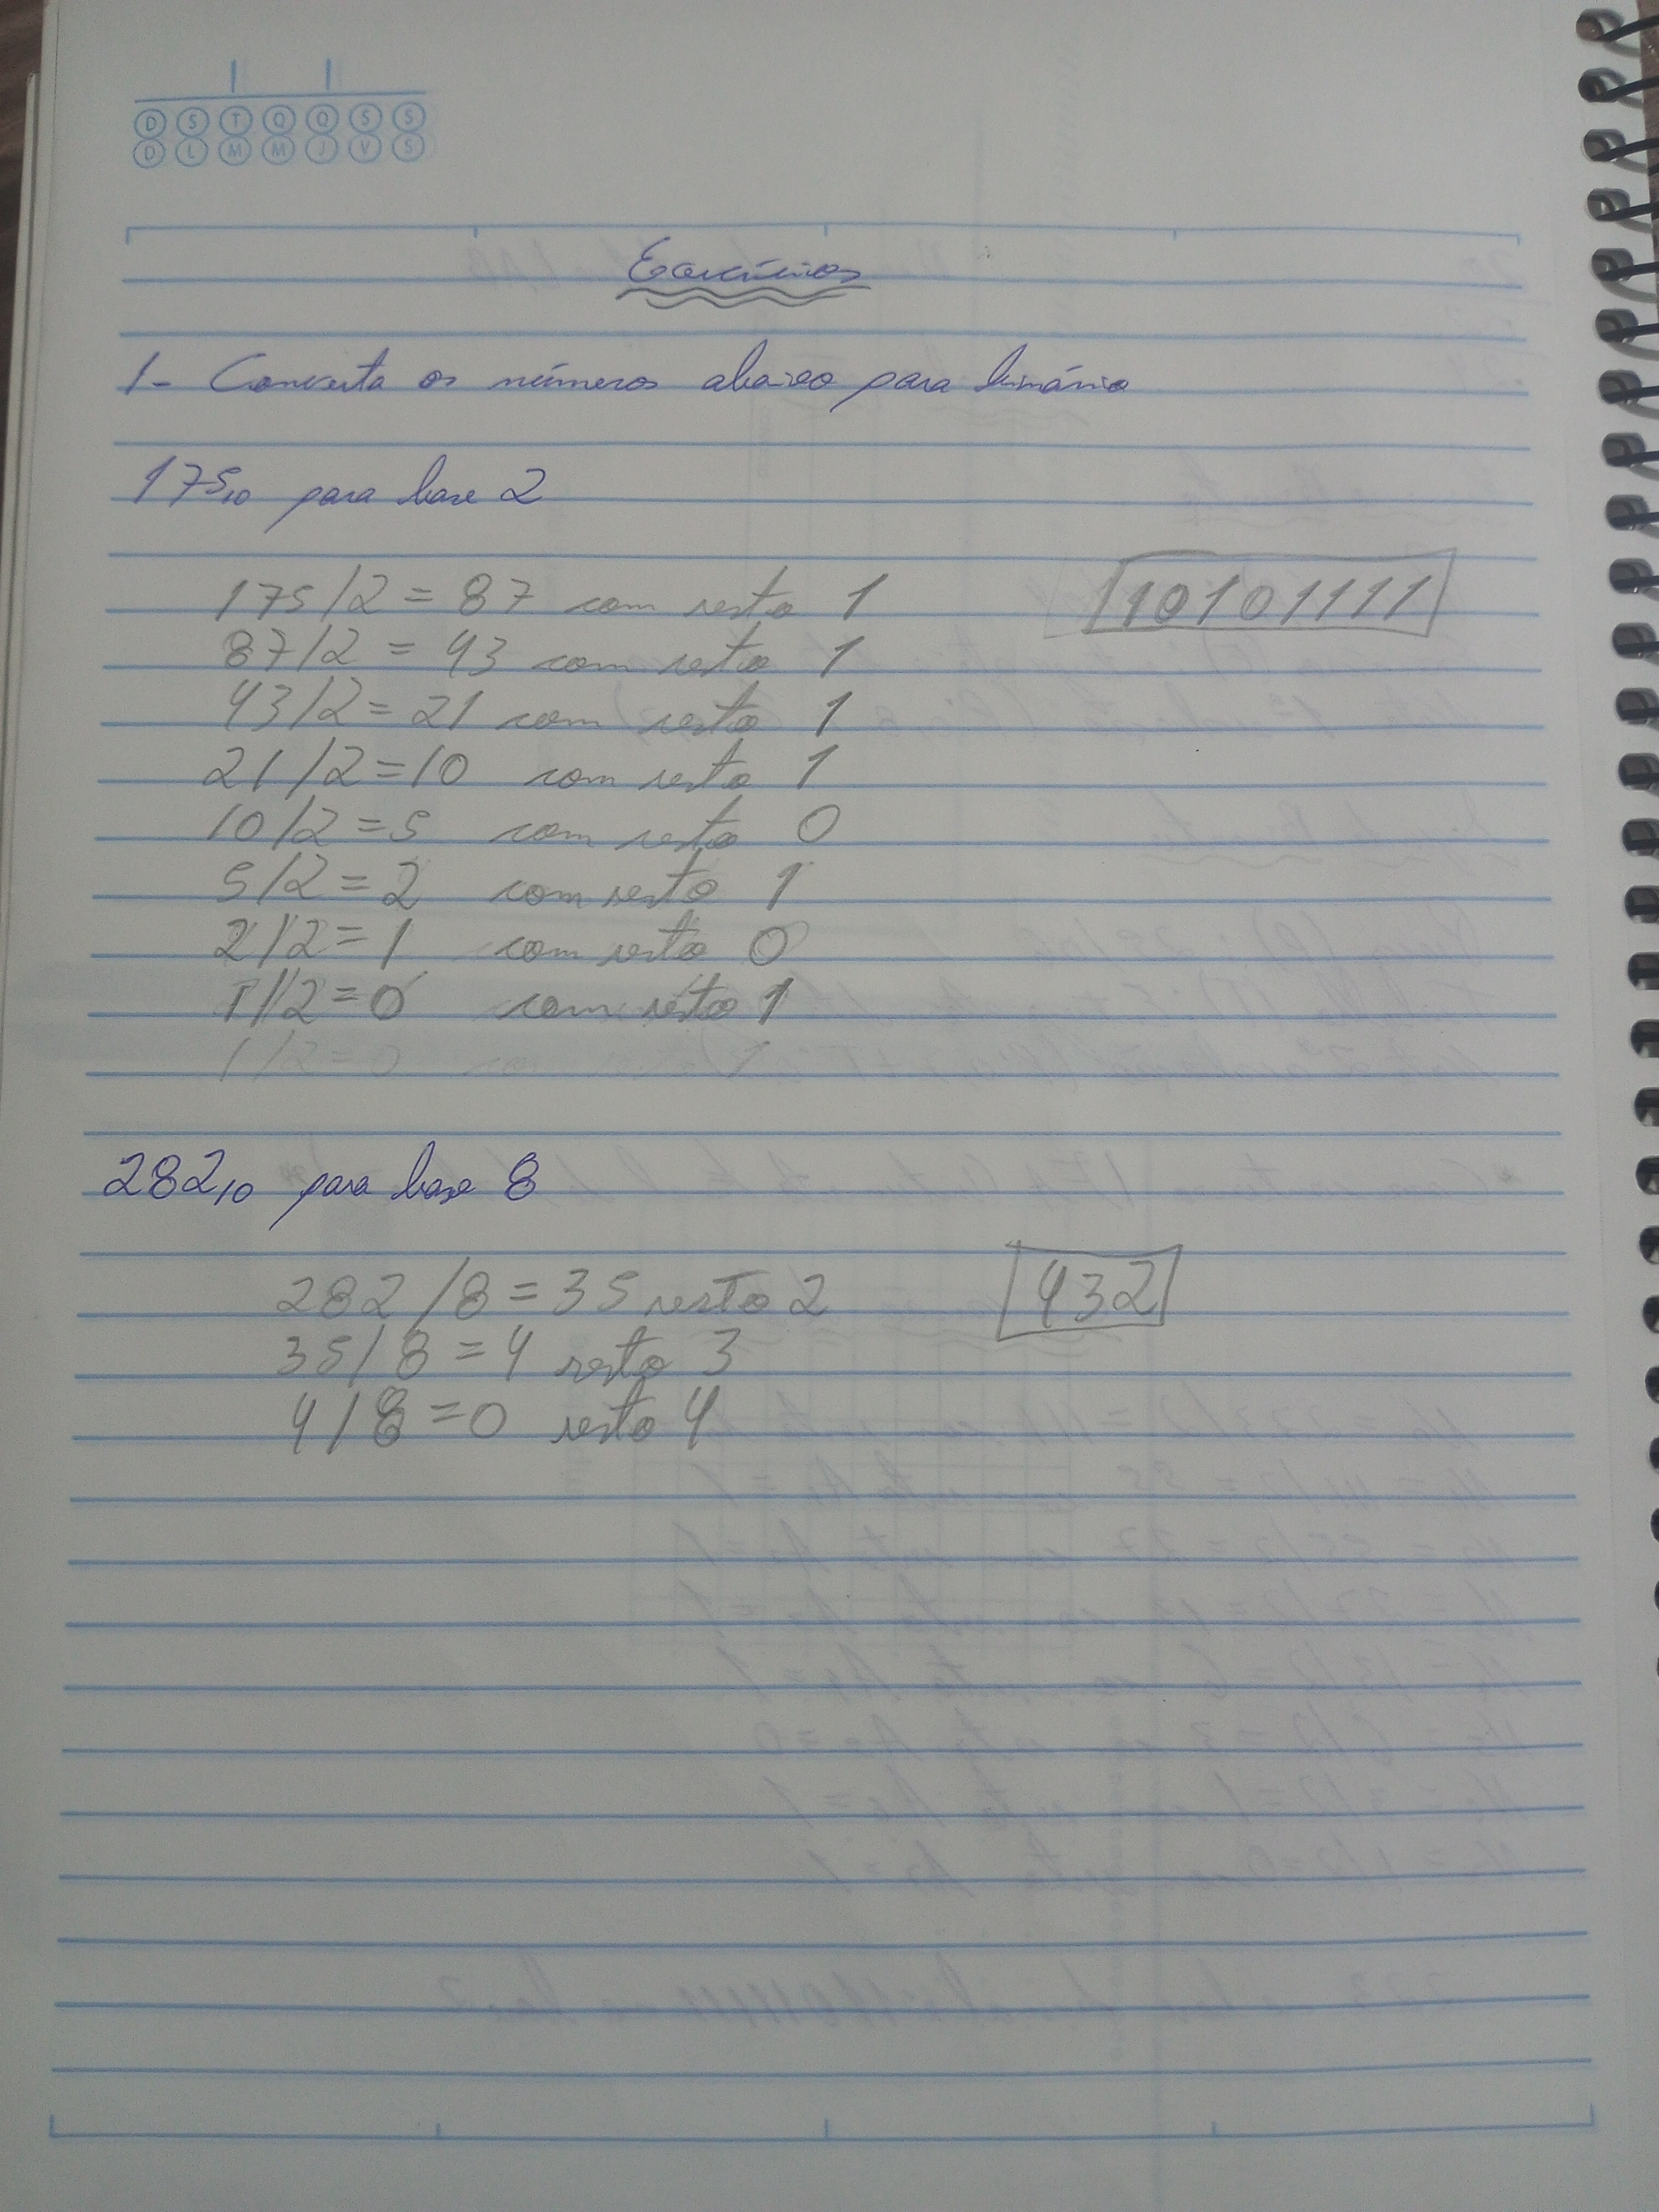 D S T Q Q S S
D L M M J V S
Exercícios
1- Converta os números abaixo para binário
175₁₀ para base 2
175/2 = 87 com resto 1 10101111
87/2 = 43 com resto 1
43/2 = 21 com resto 1
21/2 = 10 com resto 1
10/2 = 5 com resto 0
5/2 = 2 com resto 1
2/2 = 1 com resto 0
1/2 = 0 com resto 1
1/2 = 0 1
282₁₀ para base 8
282/8 = 35 resto 2 432
35/8 = 4 resto 3
4/8 = 0 resto 4